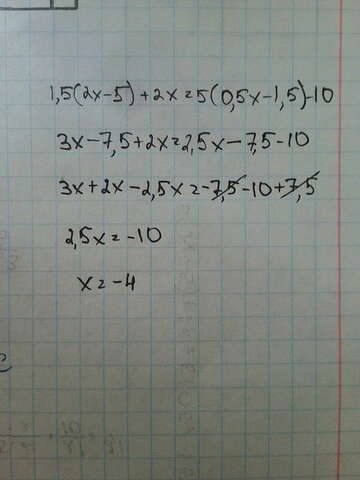 1,5(2x-5)+2x=5(0,5x-1,5)-10
3x-7,5+2x=2,5x-7,5-10
3x+2x-2,5x=-7,5-10+7,5
2,5x=-10
x=-4